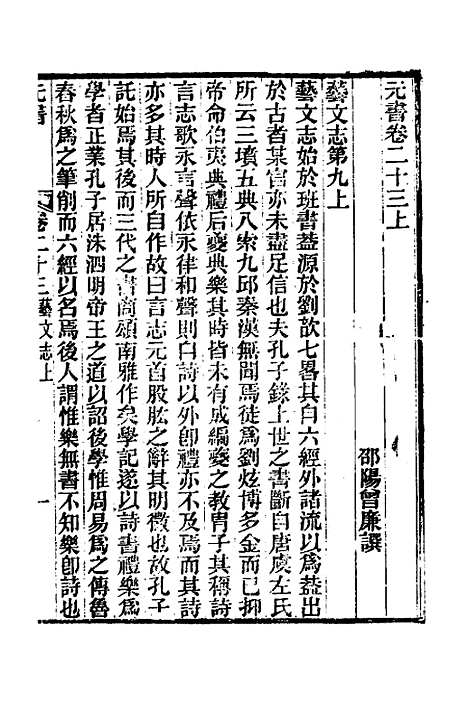 元書卷二十三上
邵陽曾廉譔
藝文志第九上
藝文志始於班書蓋源於劉歆七畧其自六經外諸流以爲蓋出
於古者某官亦未盡足信也夫孔子錄上世之書斷自唐虞左氏
所云三墳五典八索九邱秦漢無聞焉徒爲劉炫博多金而已抑
帝命伯夷典禮后夔典樂其時皆未有成編夔之教胄子其稱詩
言志歌永言聲依永律和聲則自詩以外卽禮亦不及焉而其詩
亦多其時人所自作故曰言志元首股肱之辭其明徵也故孔子
託始焉其後而三代之書商頌南雅作矣學記遂以詩書禮樂爲
學者正業孔子居洙泗明帝王之道以詔後學惟周易爲之傳魯
春秋爲之筆削而六經以名焉後人謂惟樂無書不知樂卽詩也
元書
卷二十三藝文志上
一